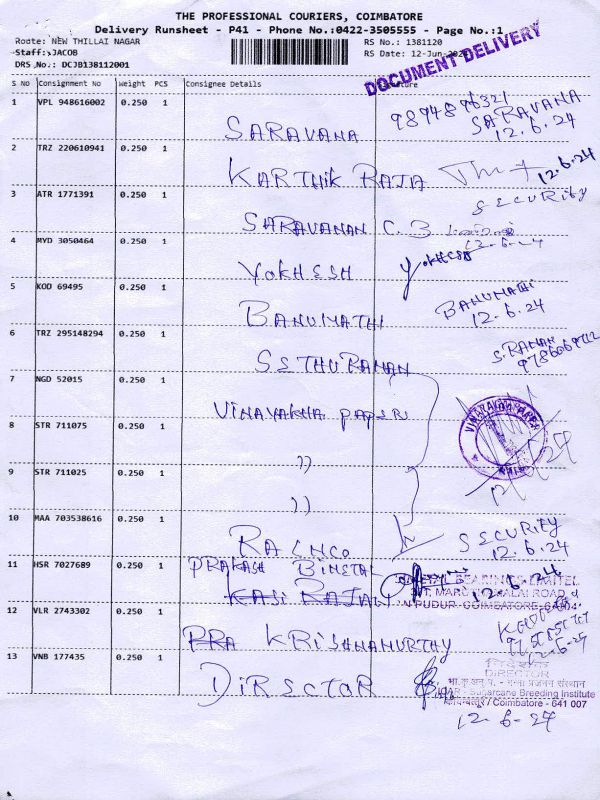 THE PROFESSIONAL COURIERS, COIMBATORE
Delivery Runsheet - P41 - Phone No.:0422-3505555 - Page No.:1
Route: NEW THILLAI NAGAR
RS No.: 1381120
Staff: JACOB
RS Date: 12-Jun-
DRS No.: DCJB138112001
DOCUMENT DELIVERY
S No Consignment No Weight PCS Consignee Details
1 VPL 948616002 0.250 1 SARAVANA SARAVANA
12.6.24
2 TRZ 220610941 0.250 1 KARTHIK RAJA 12.6.24
3 ATR 1771391 0.250 1 SARAVANAN C.B SECURITY
4 MYD 3050464 0.250 1 YOKHESH
5 KOD 69495 0.250 1 BANUMATHI BANUMATHI
12.6.24
6 TRZ 295148294 0.250 1 SETHURAMAN S.RAMAN
7 NGD 52015 0.250 1 VINAYAKHA PAPER
8 STR 711075 0.250 1 ))
9 STR 711025 0.250 1 ))
10 MAA 703538616 0.250 1 RALHCO SECURITY
12.6.24
11 HSR 7027689 0.250 1 PRAKASH BIMETAL
KASI RAJAN
BIMETAL BEARINGS LIMITED
12 VLR 2743302 0.250 1 PRA KRISHNAMURTHY
13 VNB 177435 0.250 1 DIRECTOR
निदेशक
DIRECTOR
भा.कृ.अनु.प. - गन्ना प्रजनन संस्थान
ICAR - Sugarcane Breeding Institute
कोयम्बत्तूर / Coimbatore - 641 007
12.6-24